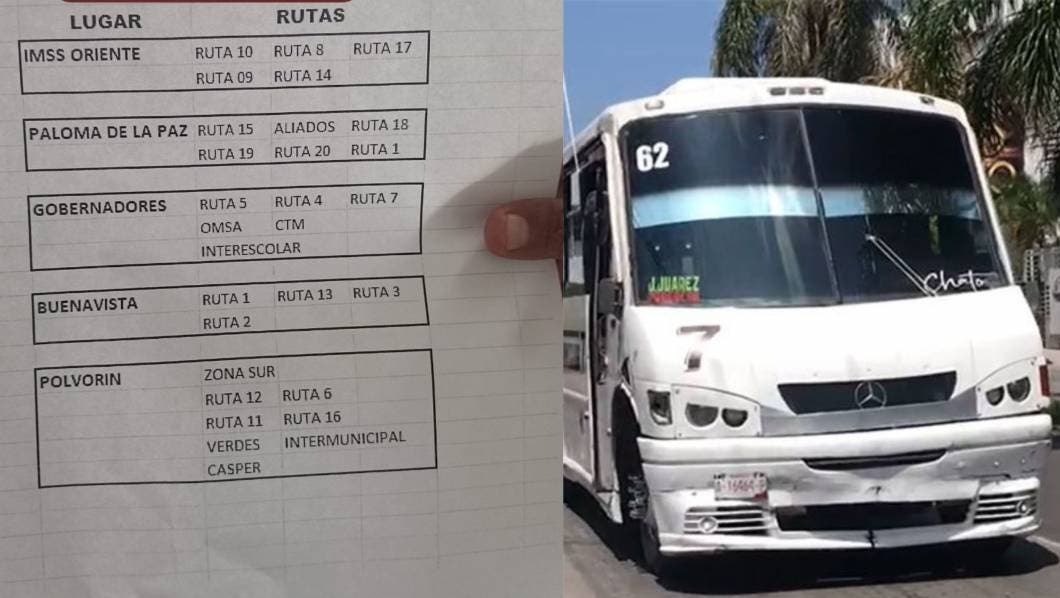 LUGAR RUTAS
IMSS ORIENTE RUTA 10 RUTA 8 RUTA 17
RUTA 09 RUTA 14
PALOMA DE LA PAZ RUTA 15 ALIADOS RUTA 18
RUTA 19 RUTA 20 RUTA 1
GOBERNADORES RUTA 5 RUTA 4 RUTA 7
OMSA CTM
INTERESCOLAR
BUENAVISTA RUTA 1 RUTA 13 RUTA 3
RUTA 2
POLVORIN ZONA SUR
RUTA 12 RUTA 6
RUTA 11 RUTA 16
VERDES INTERMUNICIPAL
CASPER
62
J.JUAREZ
Chato
7